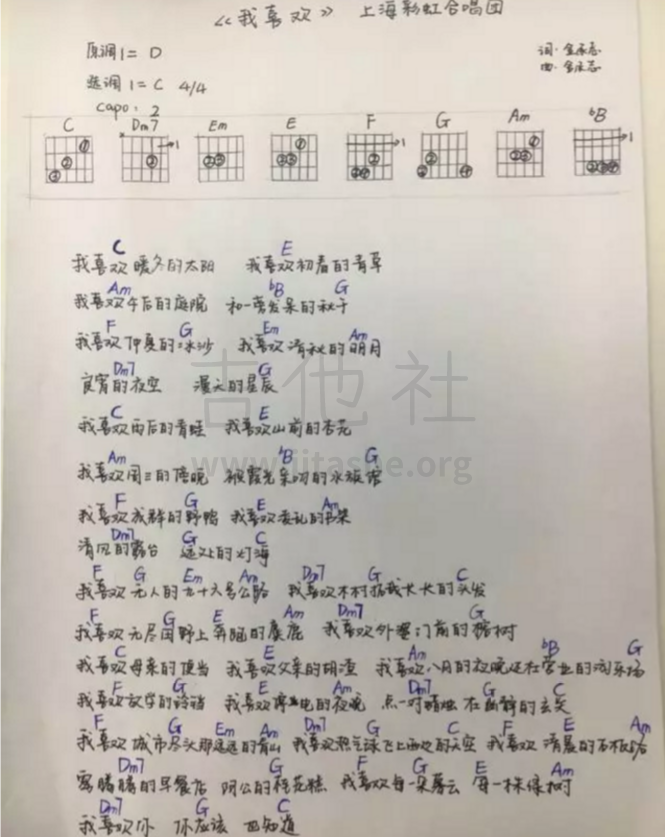 《我喜欢》 上海彩虹合唱团
原调1= D
选调 1= C 4/4
Capo: 2
词: 金承志
曲: 金承志
C Dm7 Em E F G Am bB
C E
我喜欢暖冬的太阳 我喜欢初春的青草
Am bB G
我喜欢午后的庭院 和一旁发呆的秋千
F G Em Am
我喜欢仲夏的冰沙 我喜欢清秋的明月
Dm7 G
良宵的夜空 漫天的星辰
C E
我喜欢雨后的青蛙 我喜欢山前的杏花
Am bB G
我喜欢周三的傍晚 被霞光亲吻的水族馆
F G E Am
我喜欢成群的野鸭 我喜欢凌乱的书架
Dm7 G C
清风的露台 远处的灯海
F G Em Am Dm7 G C
我喜欢无人的七十六号公路 我喜欢木村拓哉长长的头发
F G E Am Dm7 G
我喜欢无尽田野上奔跑的麋鹿 我喜欢外婆门前的榕树
C E Am bB G
我喜欢母亲的便当 我喜欢父亲的胡渣 我喜欢八月的夜晚还在营业的游乐场
F G E Am Dm7 G C
我喜欢放学的铃铛 我喜欢停电的夜晚 点一对蜡烛 在幽静的玄关
F G Em Am Dm7 G C F E Am
我喜欢城市尽头那遥远的青山 我喜欢热气球飞上西边的天空 我喜欢清晨的石板路
Dm7 G C F G E Am
雾腾腾的早餐店 阿公的桂花糕 我喜欢每一朵暮云 每一棵绿树
Dm7 G C
我喜欢你 你应该 也知道
吉他社
www.jitashe.org